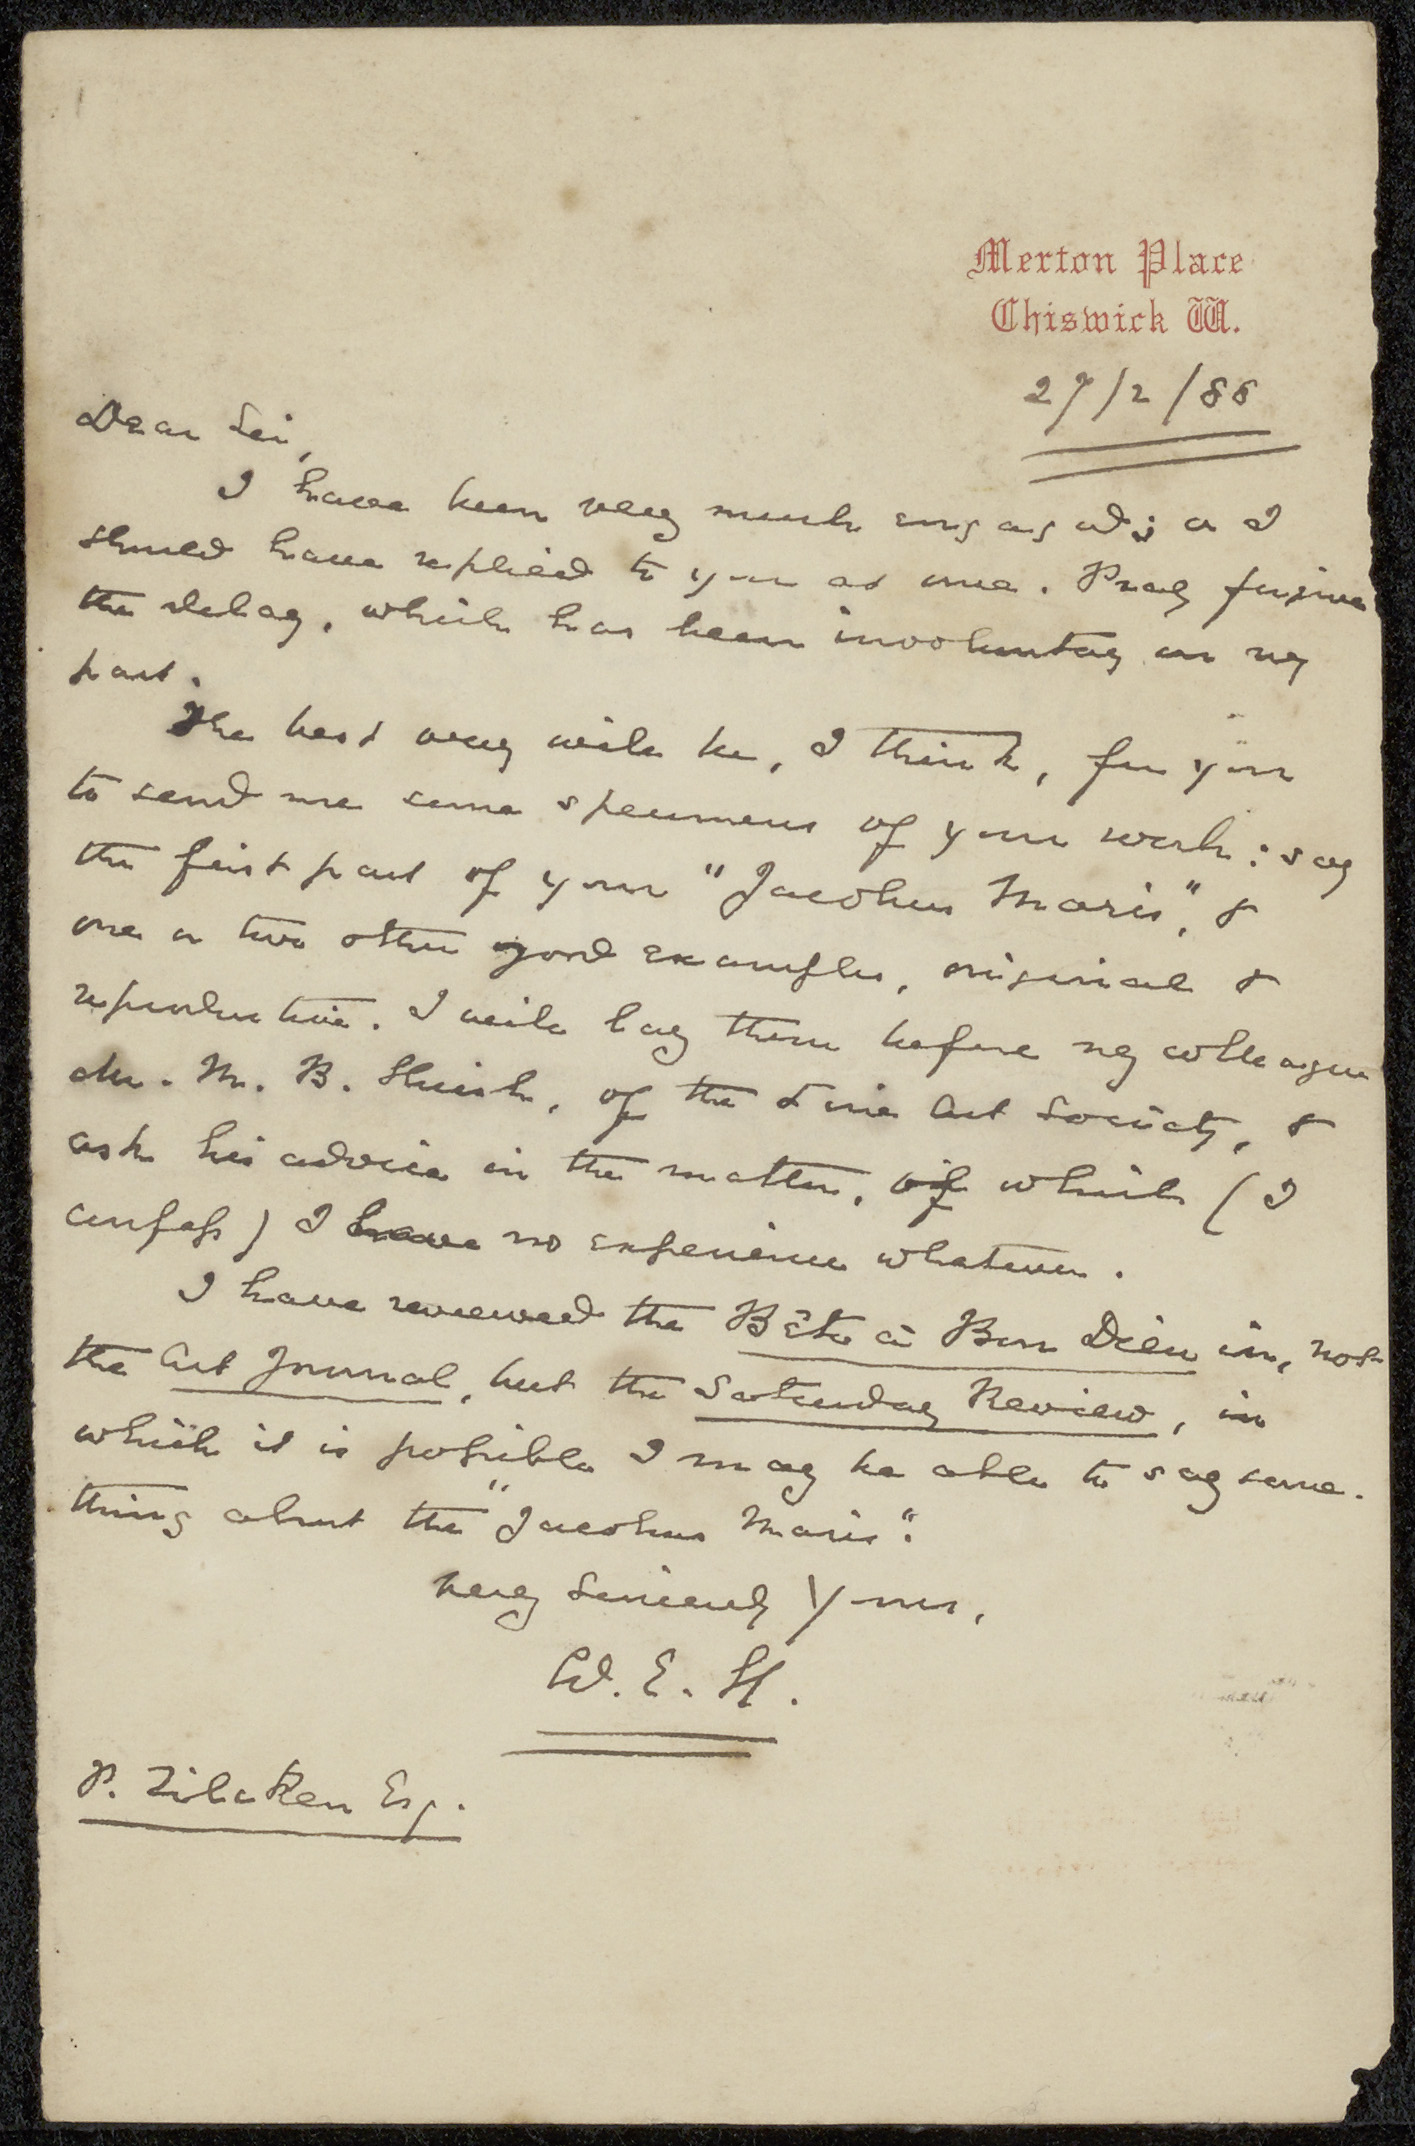 Merton Place
Chiswick W.
27/2/86
Dear Sir,
I have been very much engaged; or I
should have replied to you at once. Pray forgive
the delay, which has been involuntary on my
part.
The best way will be, I think, for you
to send me some specimens of your work: say
the first part of your "Jacobus Maris", &
one or two other good examples, original &
reproductive. I will lay them before my colleague
Mr. M. B. Huish, of the Fine Art Society, &
ask his advice in the matter, of which (I
confess) I have no experience whatever.
I have reviewed the Bête à Bon Dieu in, not
the Art Journal, but the Saturday Review, in
which it is possible I may be able to say some-
thing about the "Jacobus Maris".
Very Sincerely Yours,
W. E. H.
P. Zilcken Esq.